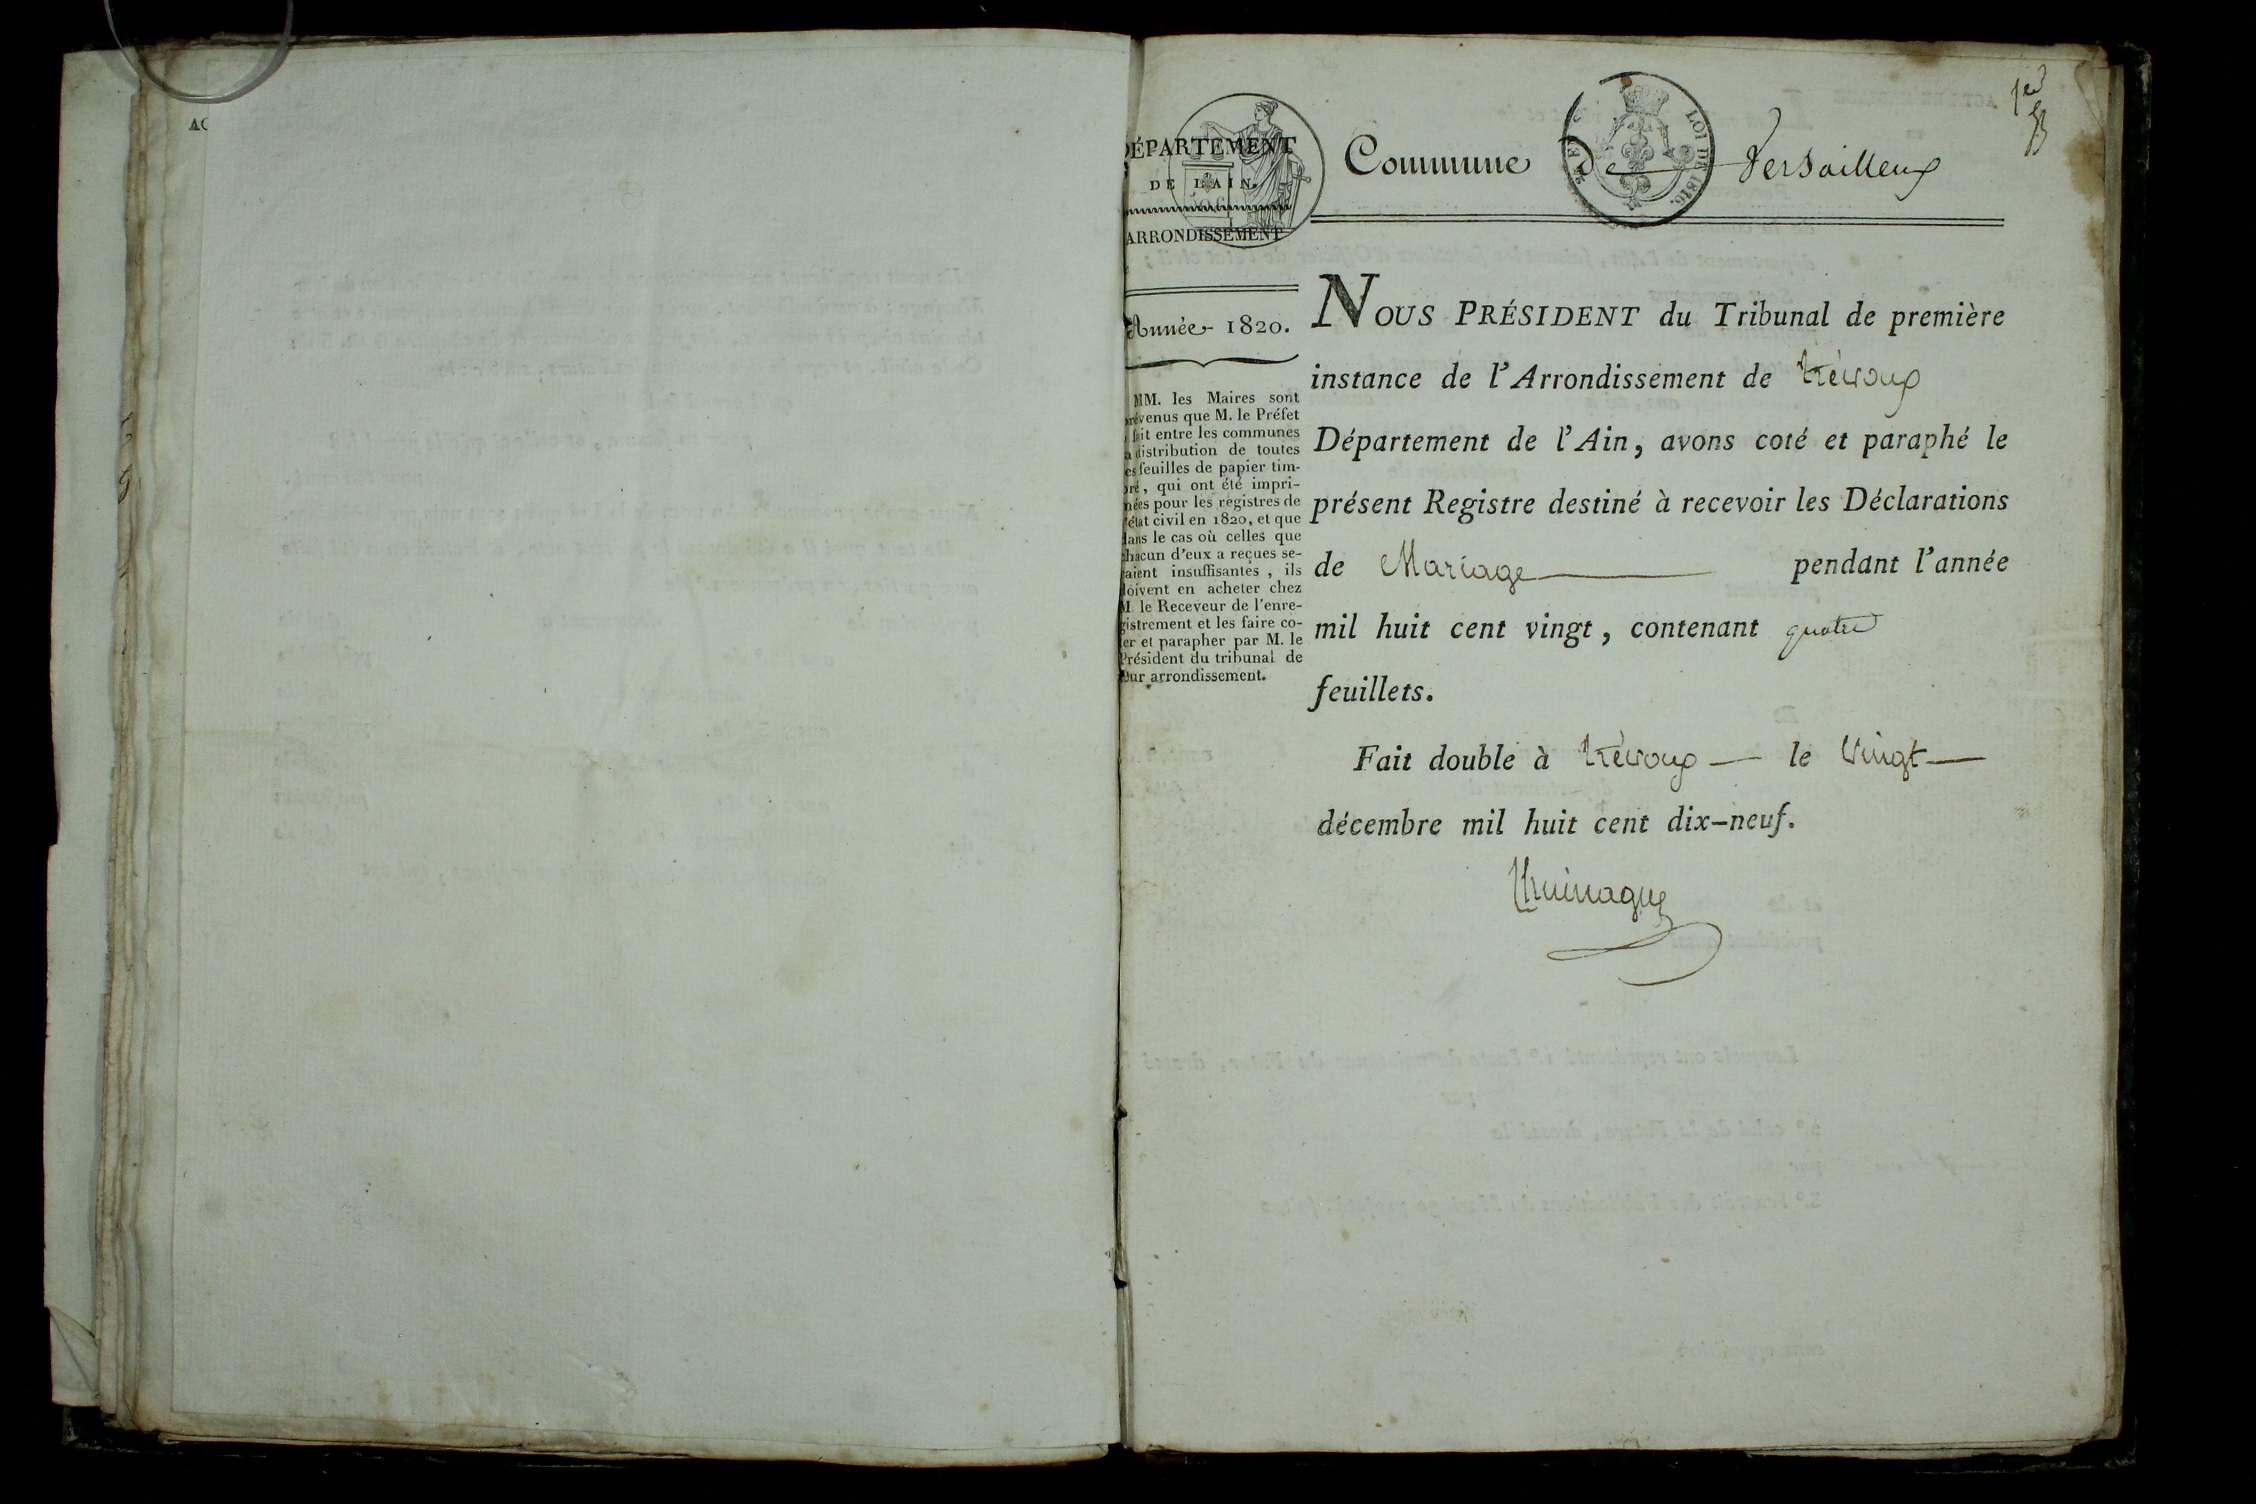 AC
1er
DÉPARTEMENT
DE L'AIN.
ARRONDISSEMENT
Année 1820.
MM. les Maires sont
prévenus que M. le Préfet
a fait entre les communes
la distribution de toutes
les feuilles de papier tim-
bré, qui ont été impri-
mées pour les registres de
l'état civil en 1820, et que
dans le cas où celles que
chacun d'eux a reçues se-
raient insuffisantes, ils
doivent en acheter chez
M. le Receveur de l'enre-
gistrement et les faire co-
ter et parapher par M. le
Président du tribunal de
leur arrondissement.
Commune De Versailleux
LOI DE 1816.
NOUS PRÉSIDENT du Tribunal de première
instance de l'Arrondissement de Trévoux
Département de l'Ain, avons coté et paraphé le
présent Registre destiné à recevoir les Déclarations
de Mariage pendant l'année
mil huit cent vingt, contenant quatre
feuillets.
Fait double à Trévoux — le Vingt —
décembre mil huit cent dix-neuf.